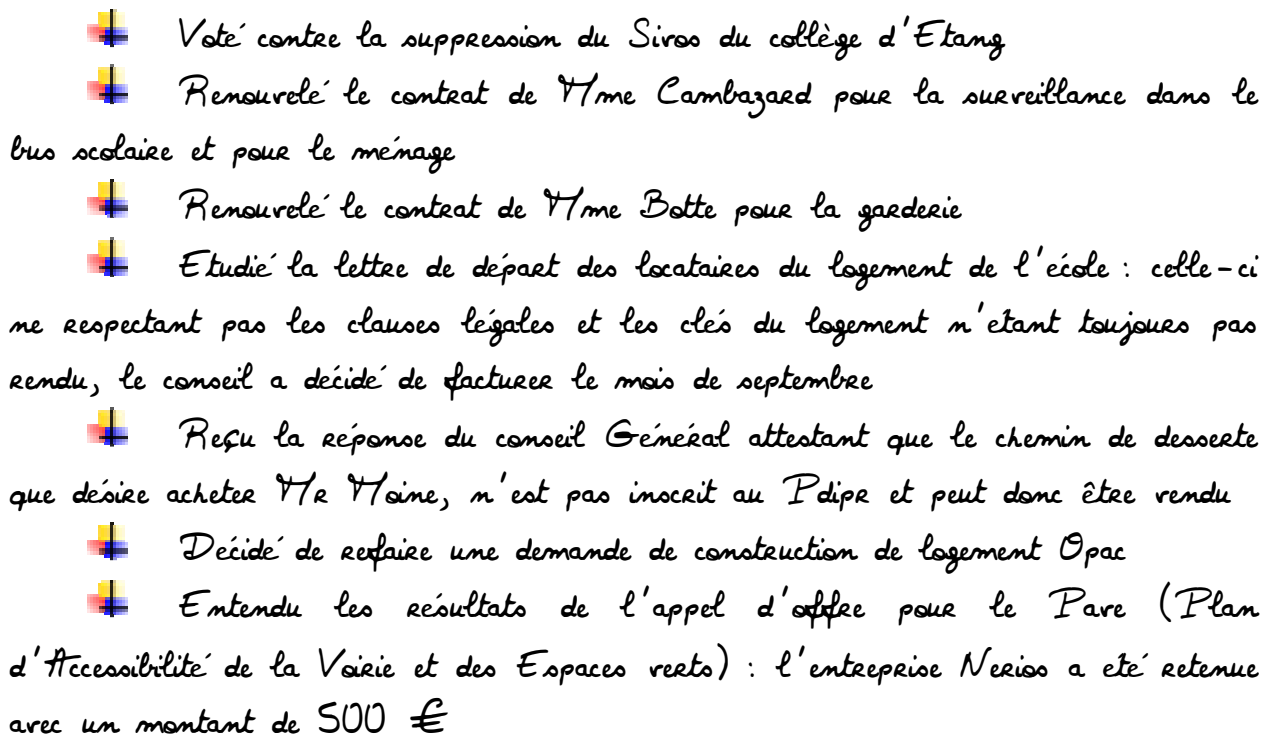 Voté contre la suppression du Sivos du collège d'Etang
Renouvelé le contrat de Mme Cambazard pour la surveillance dans le
bus scolaire et pour le ménage
Renouvelé le contrat de Mme Botte pour la garderie
Etudié la lettre de départ des locataires du logement de l'école : celle-ci
ne respectant pas les clauses légales et les clés du logement n'étant toujours pas
rendu, le conseil a décidé de facturer le mois de septembre
Reçu la réponse du conseil Général attestant que le chemin de desserte
que désire acheter Mr Moine, n'est pas inscrit au Pdipr et peut donc être vendu
Décidé de refaire une demande de construction de logement Opac
Entendu les résultats de l'appel d'offre pour le Pave (Plan
d'Accessibilité de la Voirie et des Espaces verts) : l'entreprise Nerios a été retenue
avec un montant de 500 €